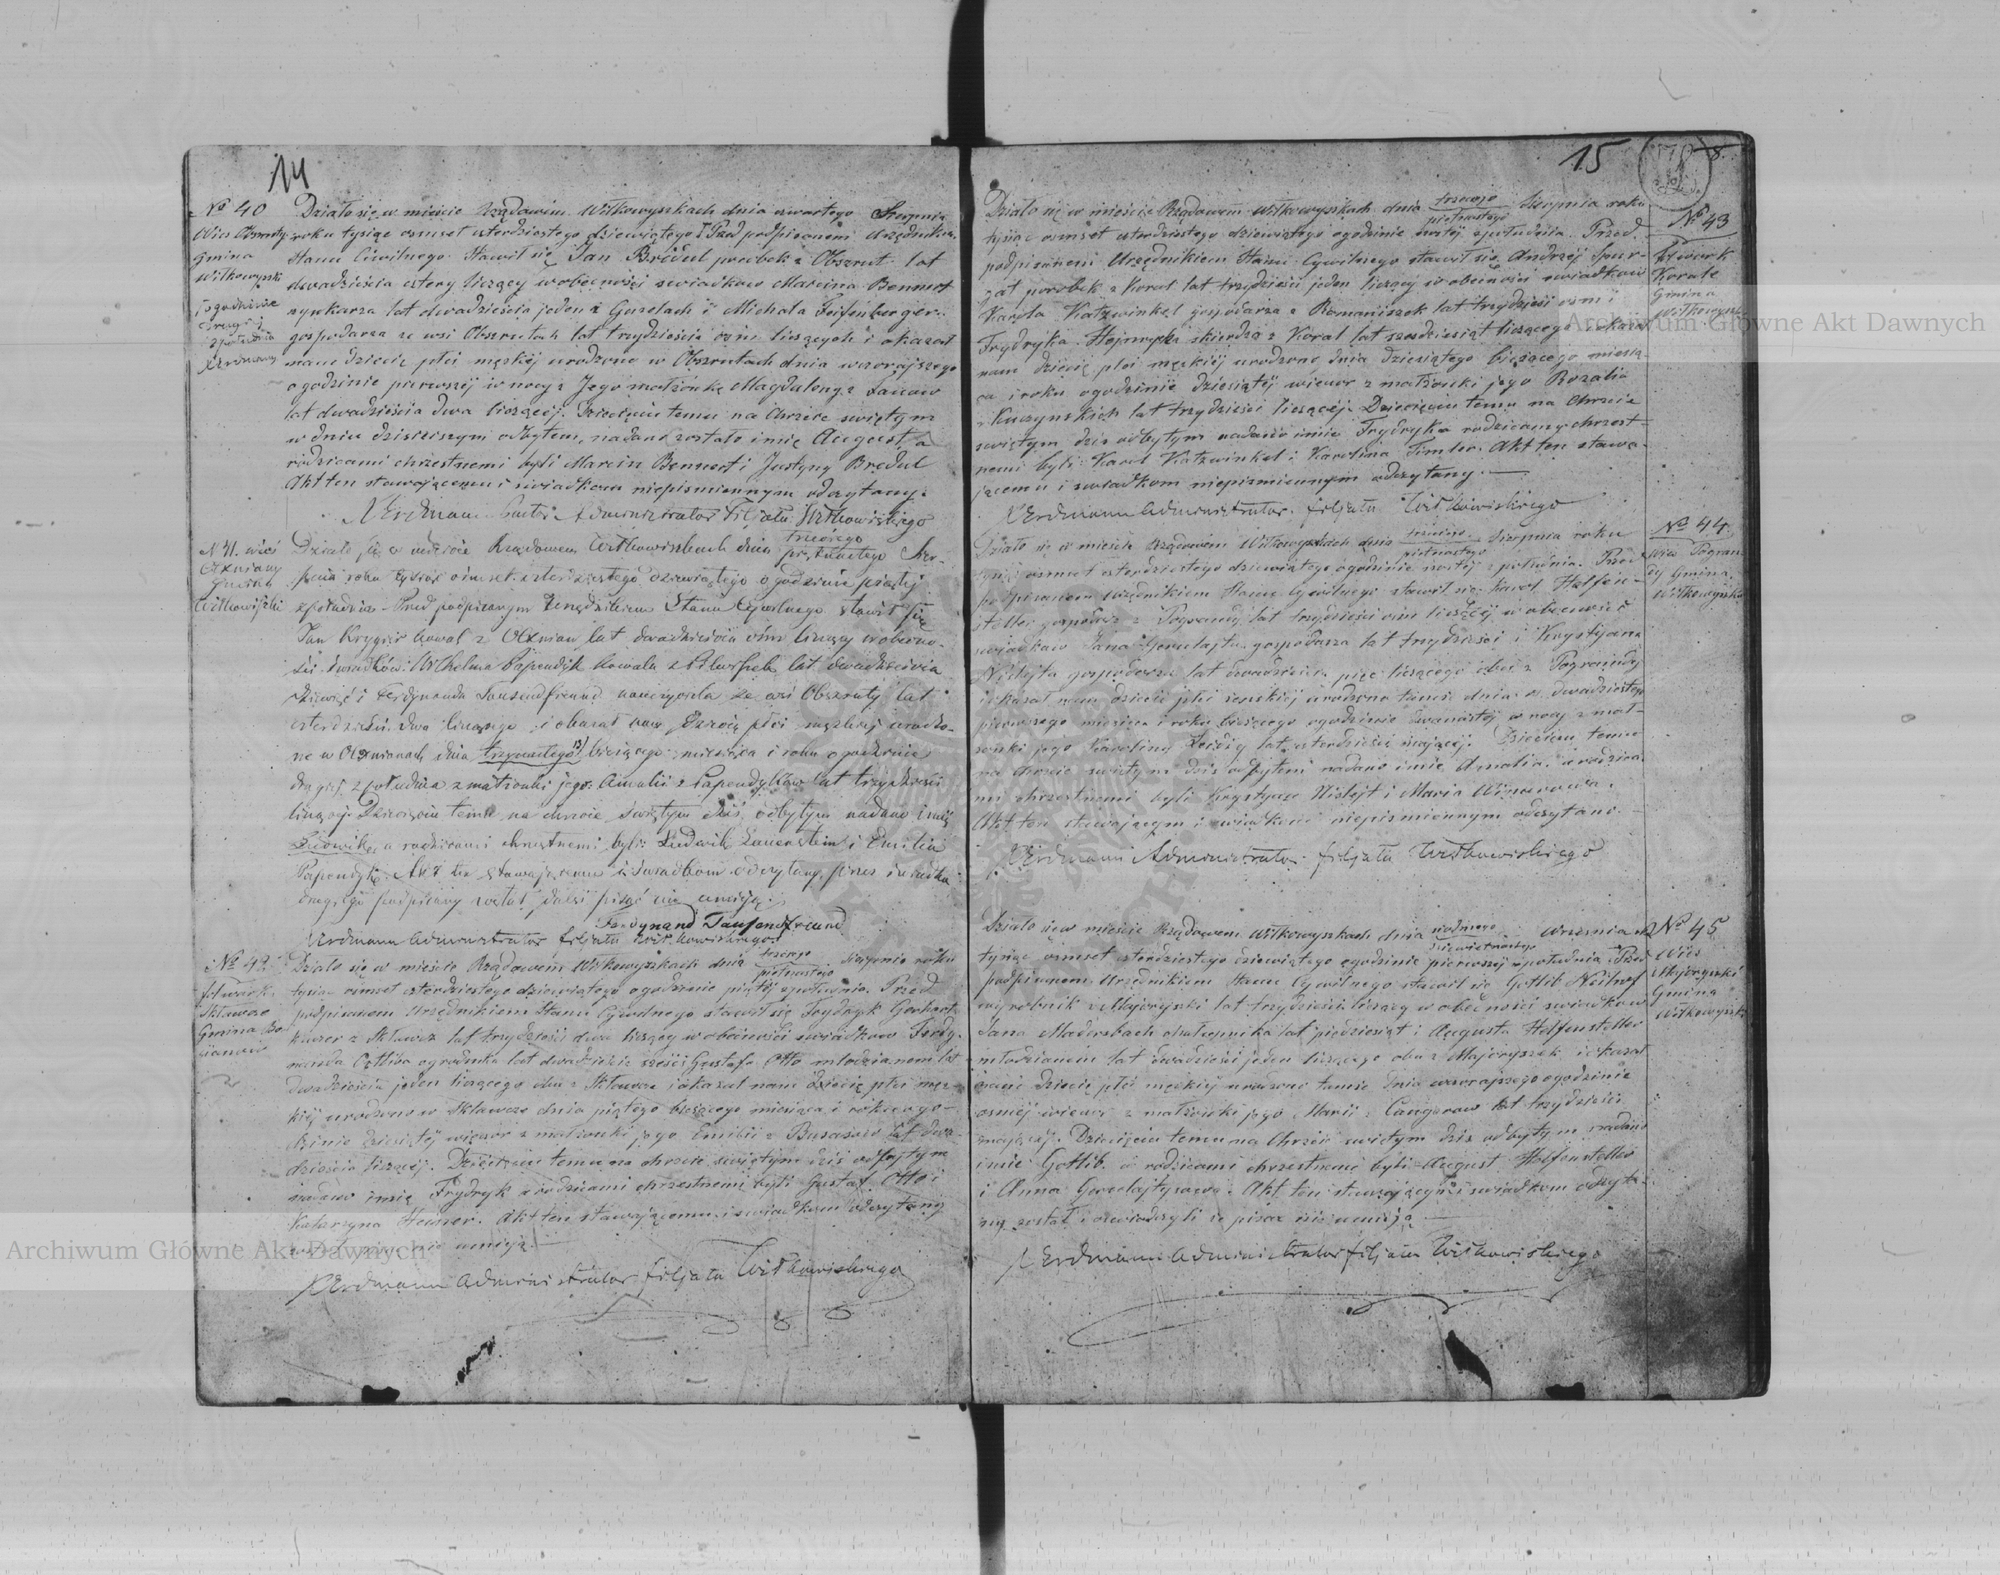 14
№ 40
Wieś Obszruty
Gmina
Wiłkowyszki
o godzinie
drugiej
z południa
XErdmann
Działo się w mieście Rządowém Wiłkowyszkach dnia czwartego Sierpnia
roku tysiąc ośmset czterdziestego dziewiątego Przed podpisanem Urzędnikiem
Stanu Cywilnego Stawił się Jan Bredul parobek z Obszrut lat
dwadzieścia cztery liczący w obecności świadków Marcina Bennert
lat dwadzieścia jeden z i Michała Feifenberger
gospodarza ze wsi Obszrutach lat trzydzieścia ośm liczących i okazał
nam dziecię płci męzkiej urodzone w Obszrutach dnia wczorajszego
o godzinie pierwszej w nocy z Jego małżonki Magdaleny z
lat dwadzieścia dwa liczącej. Dziecięciu temu na Chrzcie świętym
w dniu dzisiejszym odbytem, nadane zostało imię August a
rodzicami chrzestnemi byli Marcin Bennert i Justyna Bredul
Akt ten stawającemu i świadkom niepismiennym odczytany.
XErdmann Administrator filjału Wiłkowiskiego
№ 41. wieś
Gmina
Wiłkowiszki
Działo się w mieście Rządowem Wiłkowiszkach dnia trzeciego piętnastego Sier-
pnia roku tysiąc ośmset czterdziestego dziewiątego o godzinie piątej
z południa. Przed podpisanym Urzędnikiem Stanu Cywilnego stawił się
Jan Krygier kowal z lat dwadzieścia ośm liczący w obecno-
ści świadków Wilhelma Papendyk kowala z lat dwadzieścia
dziewięć i Ferdynanda Tausendfreund nauczyciela ze wsi Obszruty lat
czterdzieści dwa liczącego i okazał nam dziecię płci męzkiej urodzo-
ne w dnia trzynastego 13/ bieżącego miesiąca i roku o godzinie
drugiej z południa z małżonki jego Amalii z Papendyków lat trzydzieści
liczącej. Dziecięciu temu na chrzcie świętym dziś odbytym nadano imię
Ludwik, a rodzicami chrzestnemi byli Ludwik Lauenstein i Emilia
Papendyk. Akt ten stawającemu i świadkom odczytany, przez świadka
drugiego podpisany został, pisać nie umieją.
Ferdynand Tausendfreund
XErdmann Administrator filjału Wiłkowiskiego
№ 42
folwark
Sklawsze
Gmina
Działo się w mieście Rządowém Wiłkowyszkach dnia trzeciego piętnastego Sierpnia roku
tysiąc ośmset czterdziestego dziewiątego o godzinie piątej z południa. Przed
podpisanem Urzędnikiem Stanu Cywilnego stawił się Frydryk Gerhart
z lat trzydzieści dwa liczący w obecności świadków Ferdy-
nanda ogrodnika lat dwadzieścia sześć i Gustafa Otto młodzianem lat
dwadzieścia jeden liczącego obu z i okazał nam dziecię płci męz-
kiej urodzone w dnia piątego bieżącego miesiąca i roku o go-
dzinie dziesiątej wieczor z małżonki jego Emilii z lat dwa-
dzieścia liczącej. Dziecięciu temu na chrzcie świętym dziś odbytym
nadano imię Frydryk a rodzicami chrzestnemi byli Gustaf Otto i
Katarzyna Heisner. Akt ten stawającemu i świadkom odczytany
został, pisać nie umieją.
XErdmann Administrator filjału Wiłkowiskiego
15
№ 43
Folwark
Korale
Gmina
Wiłkowyszki
Działo się w mieście Rządowém Wiłkowyszkach dnia trzeciego piętnastego Sierpnia roku
tysiąc ośmset czterdziestego dziewiątego o godzinie szóstej z południa. Przed
podpisanem Urzędnikiem Stanu Cywilnego stawił się Andrzej
parobek z Koral lat trzydzieści jeden liczący w obecności świadków
Karola Katzwinkel gospodarza z Romaniszek lat trzydzieści ośm i
Frydryka z Koral lat sześdziesiąt liczącego i okazał
nam dziecię płci męzkiej urodzone dnia dziesiątego bieżącego miesią-
ca i roku o godzinie dziesiątej wieczor z małżonki jego Rozalii
z Kuczynskich lat trzydzieści liczącej. Dziecięciu temu na chrzcie
świętym dziś odbytym nadano imie Frydryk a rodzicamy chrzest-
nemi byli Karol Katzwinkel i Karolina Timler. Akt ten stawa-
jącemu i świadkom niepismiennym odczytany.
XErdmann Administrator filjału Wiłkowiskiego
№ 44
Wieś Pograu-
dy Gmina
Wiłkowyszki
Działo się w mieście Rządowém Wiłkowyszkach dnia trzeciego piętnastego Sierpnia roku
tysiąc ośmset czterdziestego dziewiątego o godzinie szóstej z południa. Przed
podpisanem Urzędnikiem Stanu Cywilnego stawił się Karol Helfen-
steller gospodarz z lat trzydzieści ośm liczący w obecności
świadków Jana gospodarza lat trzydzieści i Krystijana
gospodarza lat dwadzieścia pięć liczącego obu z
i okazał nam dziecie płci żenskiej urodzone tamże dnia dwadziestego
pierwszego miesiąca i roku bieżącego o godzinie dwunastej w nocy z mał-
żonki jego Karoliny lat czterdzieści mającej. Dziecięciu temu
na chrzcie świętym dziś odbytem nadano imie Amalia, a rodzica-
mi chrzestnemi byli Krystyan i Maria
Akt ten stawającym i świadkom niepismiennym odczytano.
XErdmann Administrator filjału Wiłkowiskiego
№ 45
Wieś
Majoryszki
Gmina
Wiłkowyszki
Działo się w mieście Rządowém Wiłkowyszkach dnia siódmego dziewiętnastego Wrzesnia
tysiąc ośmset czterdziestego dziewiątego o godzinie pierwszej z południa. Przed
podpisanem Urzędnikiem Stanu Cywilnego stawił się Gotlib
wyrobnik z lat trzydzieści liczący w obecności świadków
Jana lat piędziesiąt i Augusta Helfensteller
młodzianem lat dwadzieścia jeden liczącego obu z Majoryszek i okazał
dziecię płci męzkiej urodzone tamże dnia wczorajszego o godzinie
osmej wieczor z małżonki jego Marii z lat trzydzieści
mającej. Dziecięciu temu na Chrzcie świętym dziś odbytym nadano
imie Gotlib a rodzicami chrzestnemi byli August Helfensteller
i Anna. Akt ten stawającym i świadkom odczyta-
ny został i oświadczyli że pisać nie umieją.
XErdmann Administrator filjału Wiłkowiskiego
Archiwum Główne Akt Dawnych
Archiwum Główne Akt Dawnych